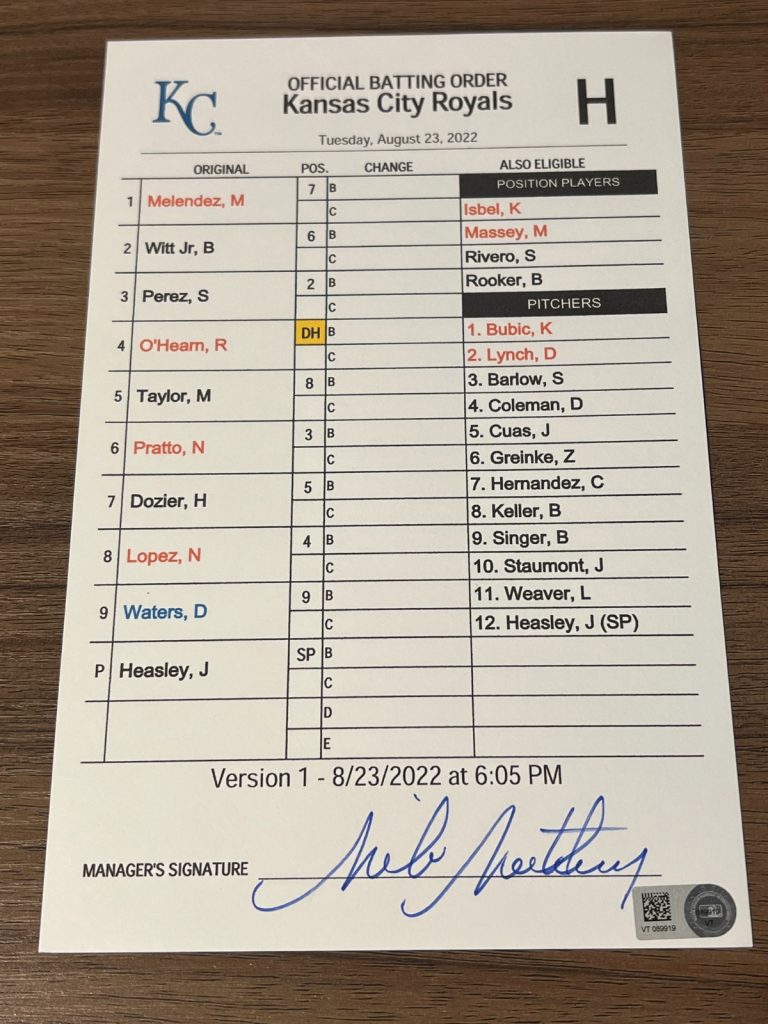 KC
OFFICIAL BATTING ORDER
Kansas City Royals
H
Tuesday, August 23, 2022
ORIGINAL POS. CHANGE ALSO ELIGIBLE
POSITION PLAYERS
1 Melendez, M 7 B
C Isbel, K
2 Witt Jr, B 6 B Massey, M
C Rivero, S
3 Perez, S 2 B Rooker, B
C PITCHERS
4 O'Hearn, R DH B 1. Bubic, K
C 2. Lynch, D
5 Taylor, M 8 B 3. Barlow, S
C 4. Coleman, D
6 Pratto, N 3 B 5. Cuas, J
C 6. Greinke, Z
7 Dozier, H 5 B 7. Hernandez, C
C 8. Keller, B
8 Lopez, N 4 B 9. Singer, B
C 10. Staumont, J
9 Waters, D 9 B 11. Weaver, L
C 12. Heasley, J (SP)
P Heasley, J SP B
C
D
E
Version 1 - 8/23/2022 at 6:05 PM
MANAGER'S SIGNATURE
VT 089919